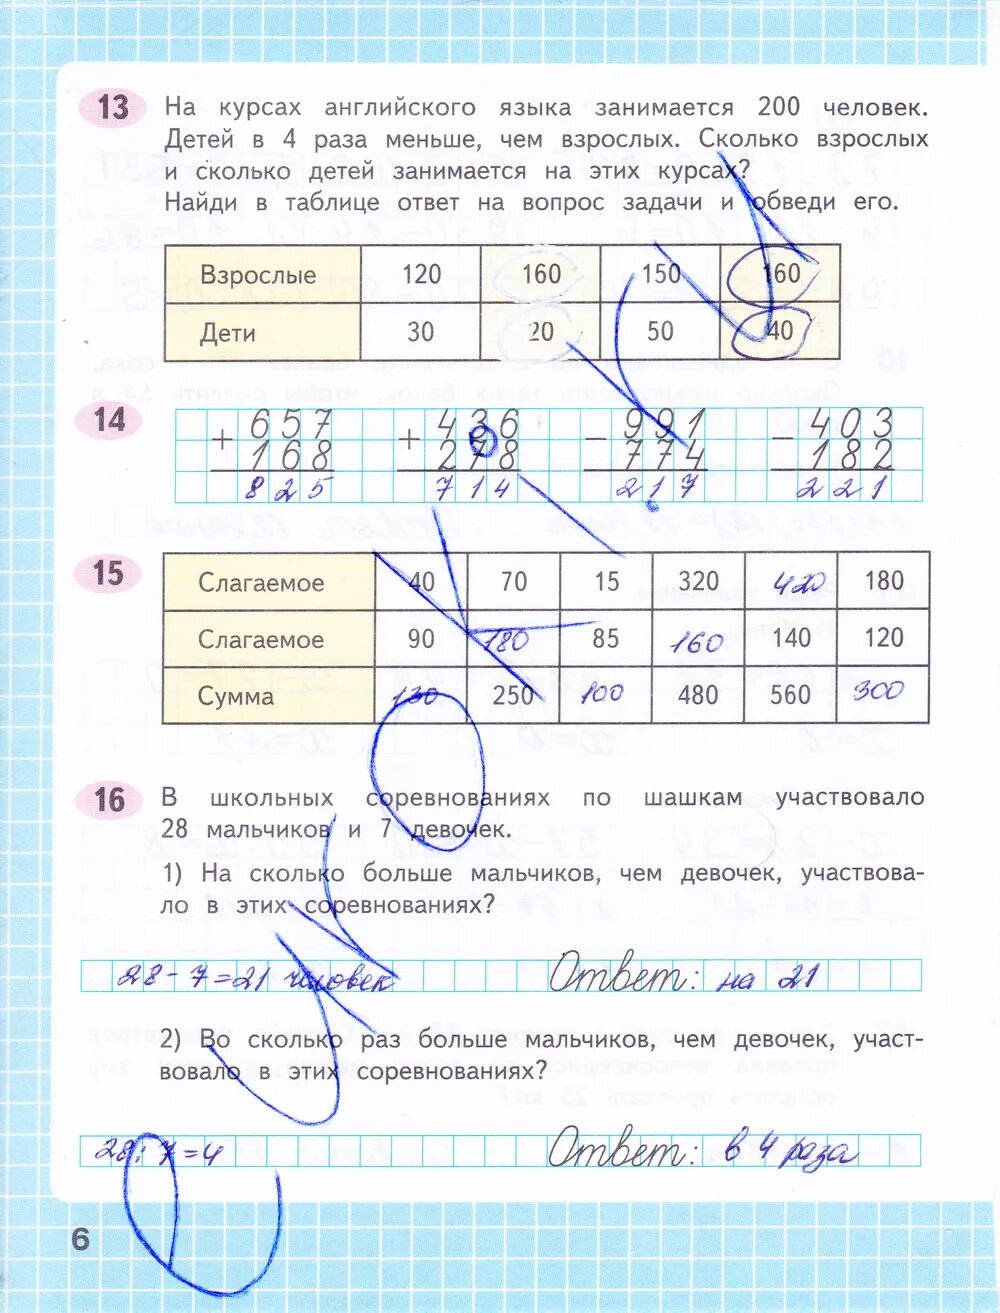 13 На курсах английского языка занимается 200 человек.
Детей в 4 раза меньше, чем взрослых. Сколько взрослых
и сколько детей занимается на этих курсах?
Найди в таблице ответ на вопрос задачи и обведи его.
Взрослые 120 160 150 160
Дети 30 20 50 40
14 + 657 + 436 - 991 - 403
168 278 774 182
825 714 217 221
15 Слагаемое 40 70 15 320 420 180
Слагаемое 90 180 85 160 140 120
Сумма 130 250 100 480 560 300
16 В школьных соревнованиях по шашкам участвовало
28 мальчиков и 7 девочек.
1) На сколько больше мальчиков, чем девочек, участвова-
ло в этих соревнованиях?
28 - 7 = 21 человек Ответ: на 21
2) Во сколько раз больше мальчиков, чем девочек, участ-
вовало в этих соревнованиях?
28 : 7 = 4 Ответ: в 4 раза
6